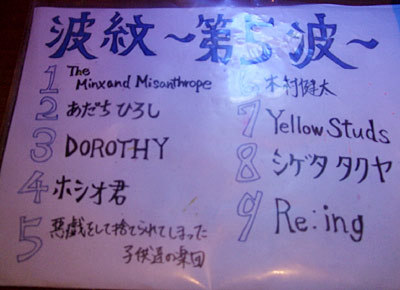 波紋～第5波～
1 The Minx and Misanthrope
2 あだち ひろし
3 DOROTHY
4 ホシオ君
5 悪戯をして捨てられてしまった
子供達の楽団
6 木村健太
7 Yellow Studs
8 シゲタ タクヤ
9 Re:ing